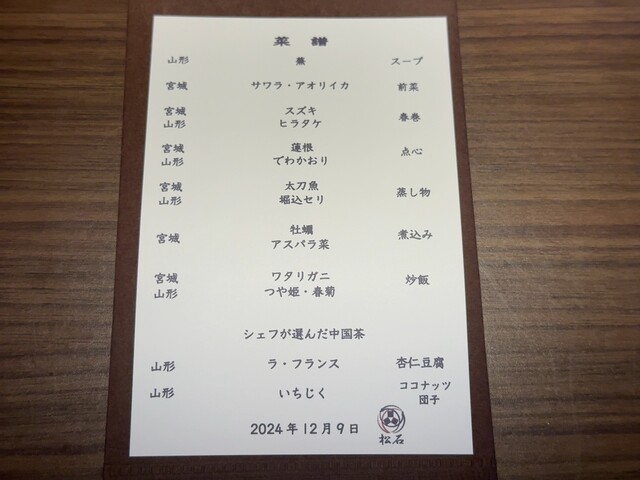 菜譜
山形 蕪 スープ
宮城 サワラ・アオリイカ 前菜
宮城 スズキ 春巻
山形 ヒラタケ
宮城 蓮根 点心
山形 でわかおり
宮城 太刀魚 蒸し物
山形 堀込セリ
宮城 牡蠣 煮込み
アスパラ菜
宮城 ワタリガニ 炒飯
山形 つや姫・春菊
シェフが選んだ中国茶
山形 ラ・フランス 杏仁豆腐
山形 いちじく ココナッツ
団子
2024年12月9日 松石